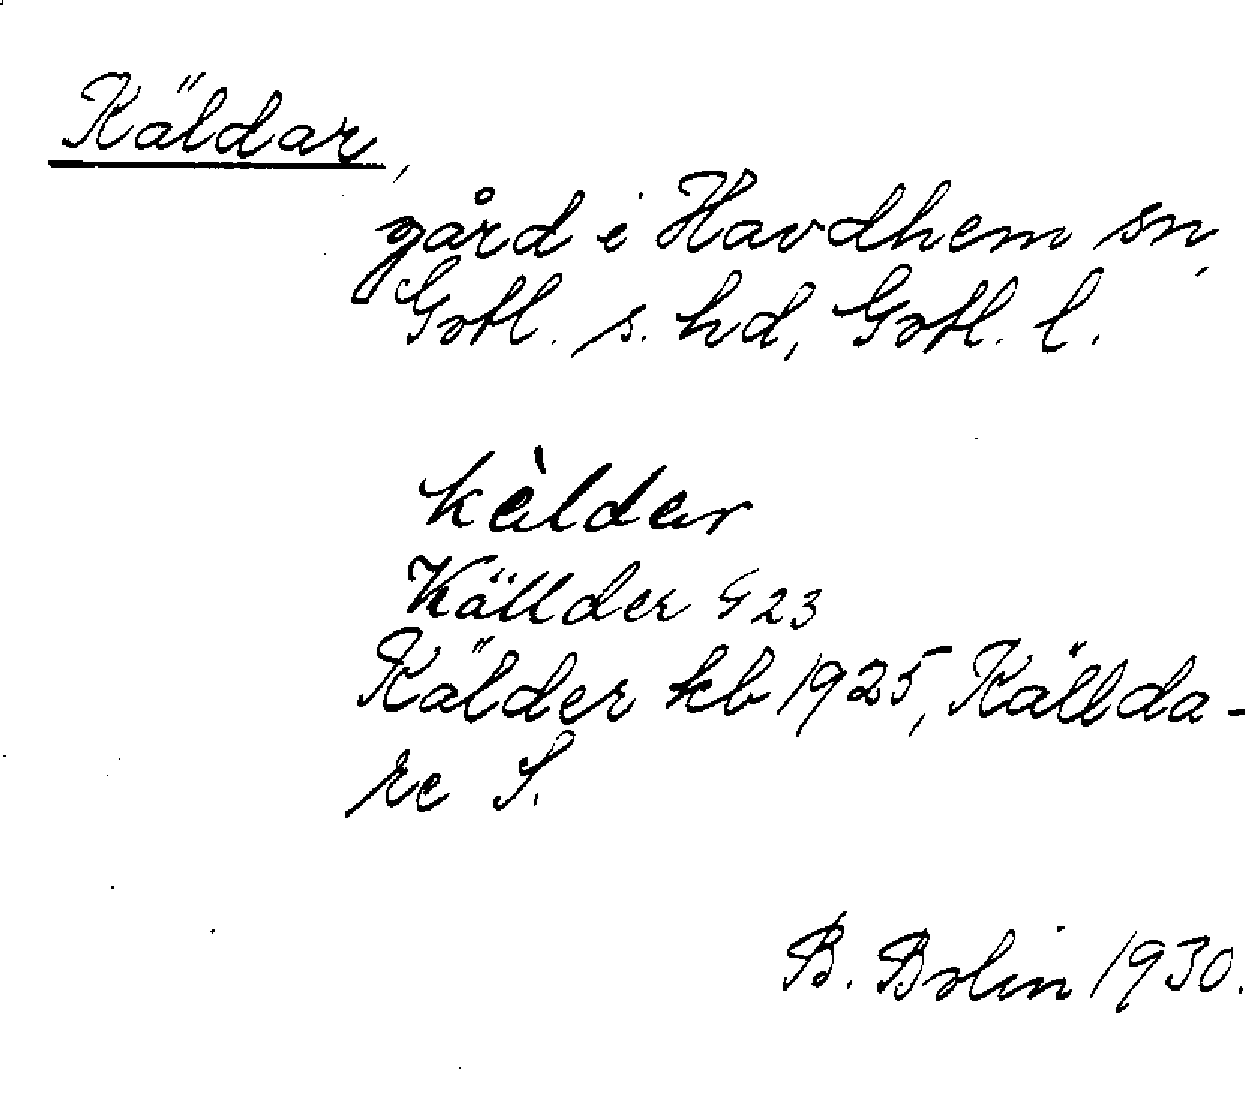 Käldar,
gård i Havdhem sn,
Gotl. s. hd, Gotl. l.
kèldar
Källder G 23
Kälder kb 1925, Källda-
re S.
B. Bolin 1930.